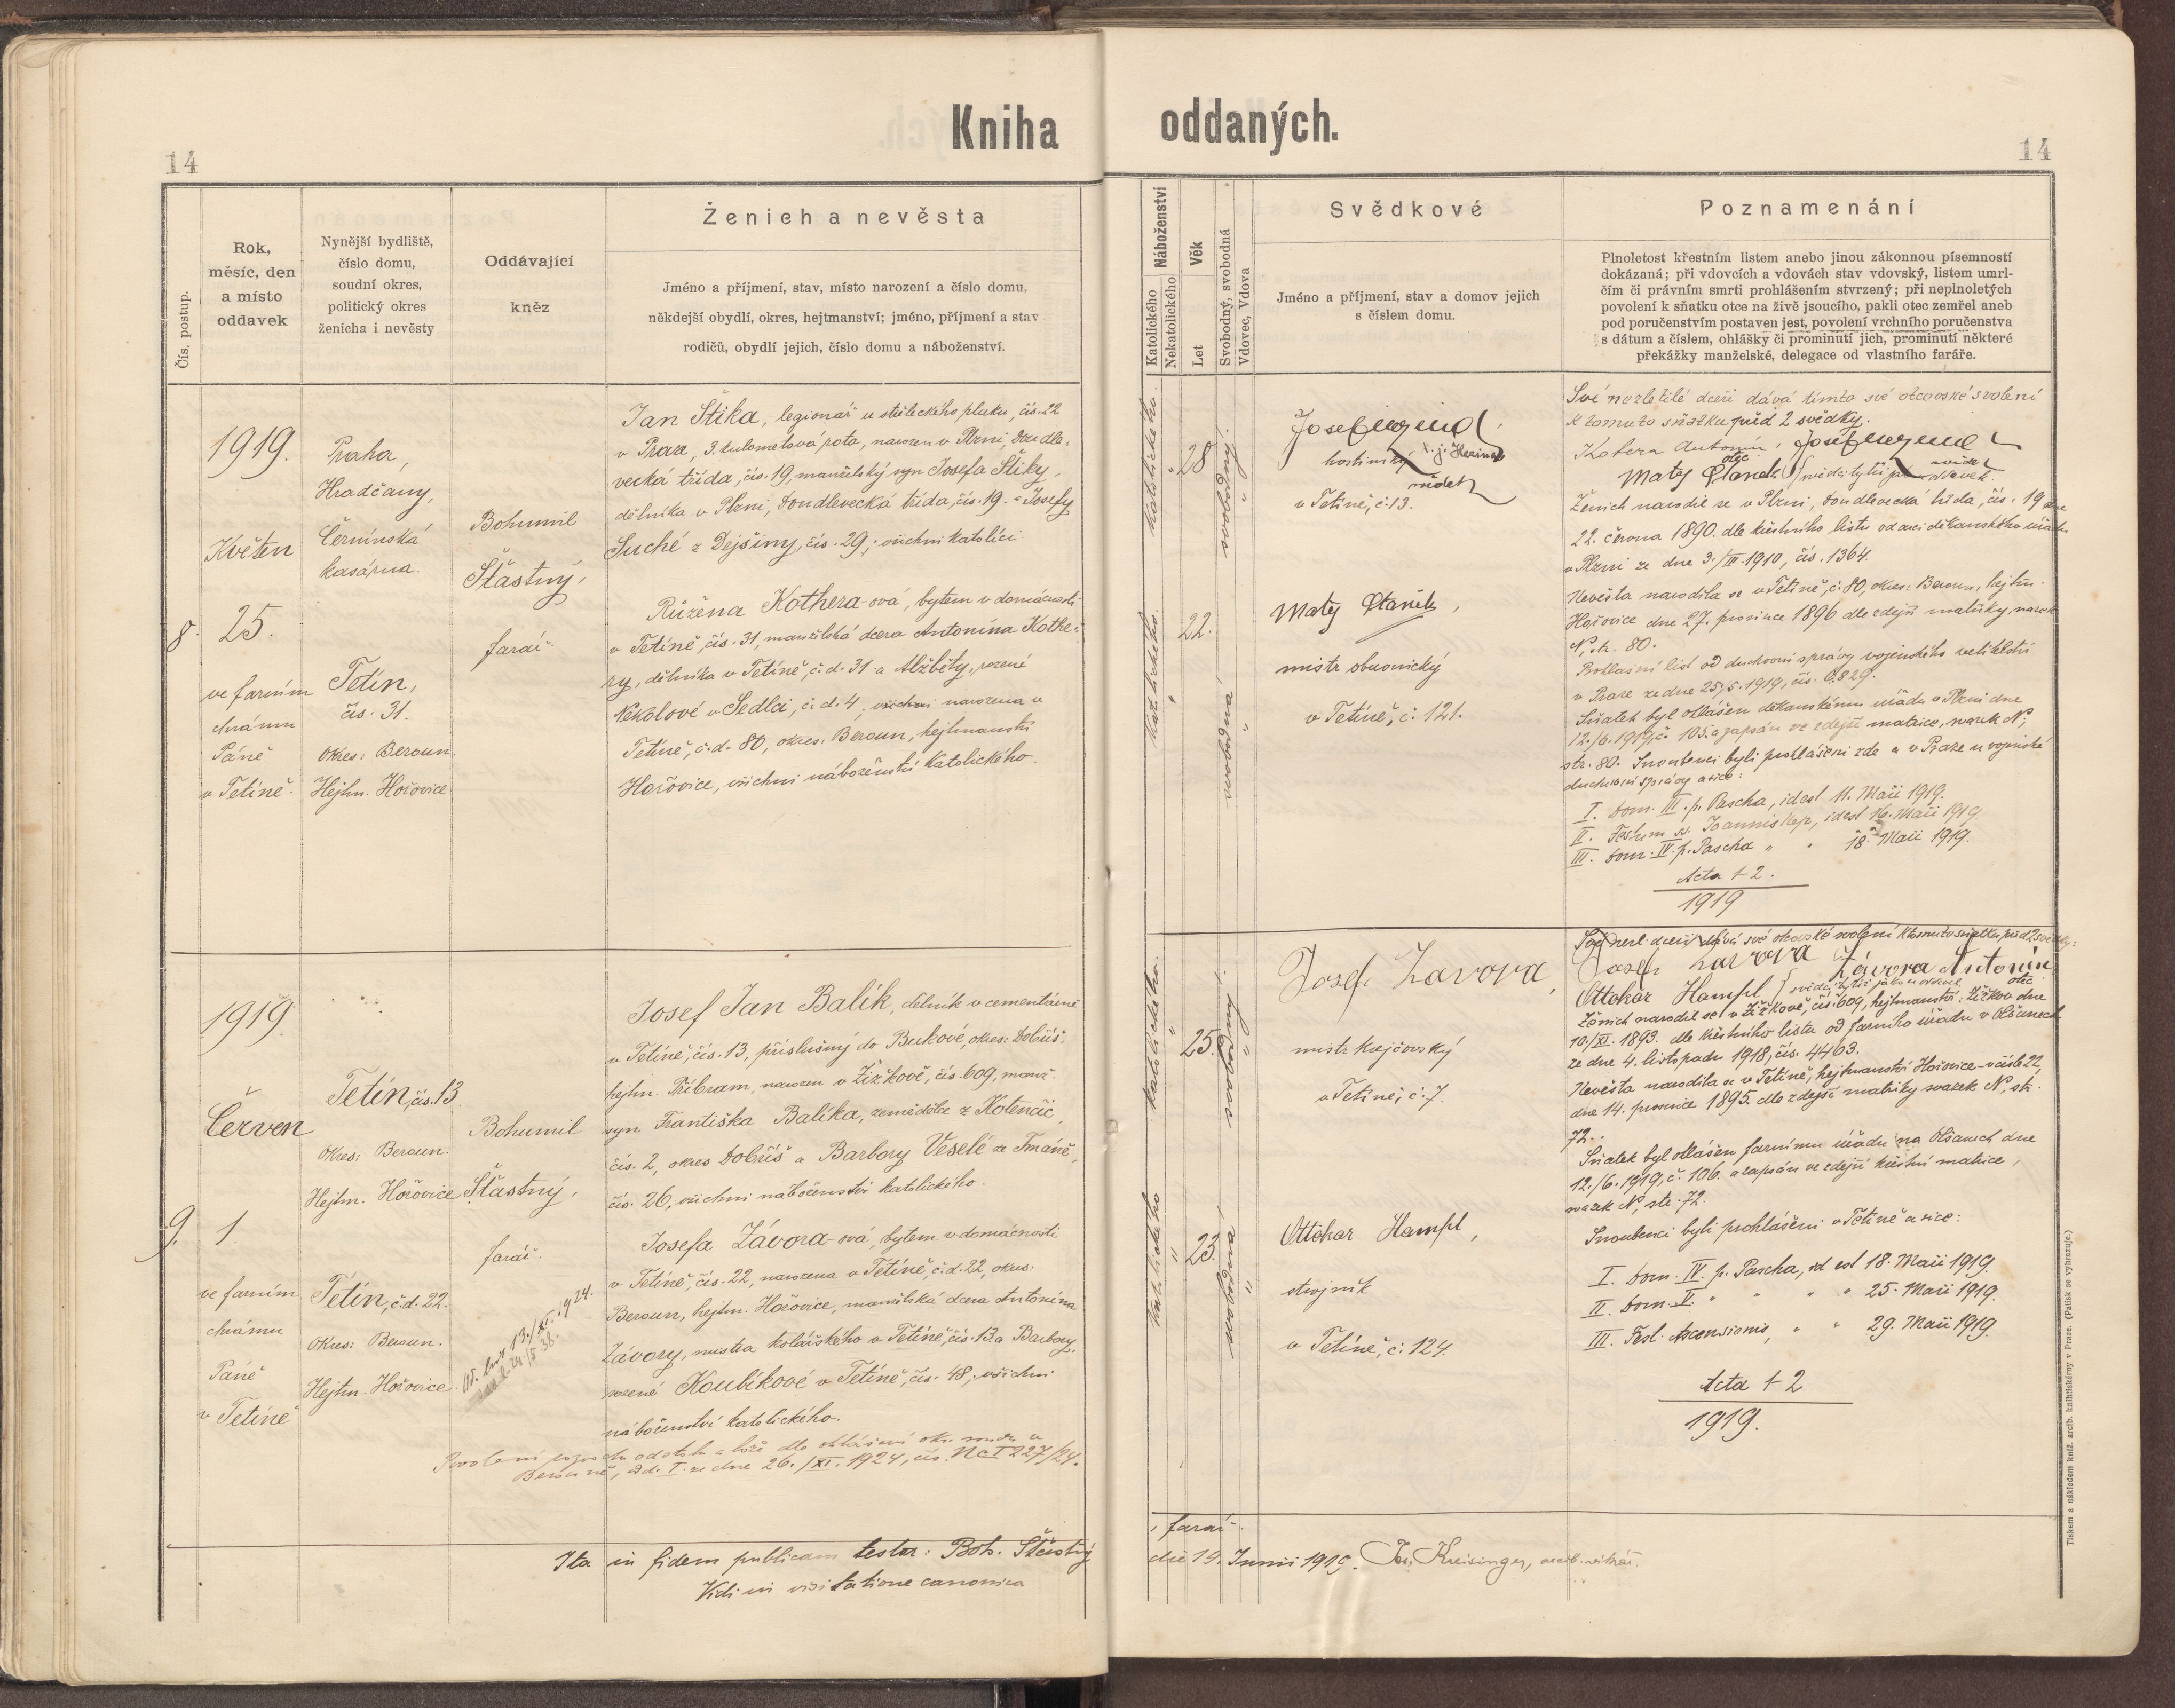 Kniha oddaných.
14
14
Čís. postup.
Rok,
měsíc, den
a místo
oddavek
Nynější bydliště,
číslo domu,
soudní okres,
politický okres
ženicha i nevěsty
Oddávající
kněz
Ženich a nevěsta
Jméno a příjmení, stav, místo narození a číslo domu,
někdejší obydlí, okres, hejtmanství; jméno, příjmení a stav
rodičů, obydlí jejich, číslo domu a náboženství.
Náboženství
Katolického
Nekatolického
Věk
Let
Svobodný, svobodná
Vdovec, Vdova
Svědkové
Jméno a příjmení, stav a domov jejich
s číslem domu.
Poznamenání
Plnoletost křestním listem anebo jinou zákonnou písemností
dokázaná; při vdovcích a vdovách stav vdovský, listem umrl-
čím či právním smrti prohlášením stvrzený; při neplnoletých
povolení k sňatku otce na živě jsoucího, pakli otec zemřel aneb
pod poručenstvím postaven jest, povolení vrchního poručenstva
s dátum a číslem, ohlášky či prominutí jich, prominutí některé
překážky manželské, delegace od vlastního faráře.
8.
1919.
Květen
25.
ve farním
chrámu
Páně
v Tetíně.
Praha,
Hradčany,
Černínská
kasárna.
Tetín,
čís. 31.
okres: Beroun.
Hejtm. Hořovice
Bohumil
Šťastný,
farář.
Jan Štika, legionář u střeleckého pluku, čís. 22
v Praze, 3. kulometová rota, narozen v Plzni, Doudle-
vecká třída, čís. 19, manželský syn Josefa Štiky,
dělníka v Plzni, Doudlevecká třída, čís. 19. a Josefy
Suché z Dejšiny, čís. 29; všichni katolíci.
Růžena Kothera-ová, bytem v domácnosti
v Tetíně, čís. 31, manželská dcera Antonína Kothe-
ry, dělníka v Tetíně, č. d. 31 a Alžběty, rozené
Nekolové v Sedlci, č. d. 4, všichni narozena v
Tetíně, č. d. 80, okres: Beroun, hejtmanství
Hořovice, všichni náboženství katolického.
katolického.
28
svobodný.
"
katolického.
"
22.
svobodná
"
Josef
hostinský
svědek
v Tetíně, č. 13.
Matěj Staněk,
mistr obuvnický
v Tetíně, č. 121.
Své nezletilé dceři dává tímto své otcovské svolení
k tomuto sňatku před 2 svědky.
Kotera Antonín, Josef
otec
Matěj Staněk
Ženich narodil se v Plzni, Doudlevecká třída, čís. 19 dne
22. června 1890. dle křestního listu od arciděkanského úřadu
v Plzni ze dne 3./III. 1910, čís. 1364.
Nevěsta narodila se v Tetíně, č. 80, okres: Beroun, hejtm.
Hořovice dne 27. prosince 1896 dle zdejší matriky, svazek
N, str. 80.
Prohlašní list od duchovní správy vojenského velitelství
v Praze ze dne 25./5. 1919, čís. 6.829.
Sňatek byl ohlášen děkanskému úřadu v Plzni dne
12./6. 1919, č. 105. a zapsán ve zdejší matrice, svazek N,
str. 80. Snoubenci byli prohlášeni zde a v Praze u vojenské
duchovní správy a sice:
I. Dom. III. p. Pascha, id est 11. Maii 1919.
II. Festum s. Joannis Nep., id est 16. Maii 1919.
III. Dom. IV. p. Pascha " " 18. Maii 1919.
Acta † 2.
1919
9.
1919.
Červen
1.
ve farním
chrámu
Páně
v Tetíně
Tetín, čís. 13
okres: Beroun.
Hejtm. Hořovice
Tetín, č. d. 22.
Okres: Beroun.
Hejtm. Hořovice.
Bohumil
Šťastný,
farář.
13./XI. 1924.
Josef Jan Balík, dělník v cementárně
v Tetíně, čís. 13, příslušný do Bukové, okres: Dobříš,
hejtm. Příbram, narozen v Žižkově, čís. 609, manž.
syn Františka Balíka, zemědělce z Kotenčic,
čís. 2, okres Dobříš a Barbory Veselé ze Tmáně,
čís. 26, všichni náboženství katolického.
Josefa Závora-ová, bytem v domácnosti
v Tetíně, čís. 22, narozena v Tetíně, č. d. 22, okres:
Beroun, hejtm. Hořovice, manželská dcera Antonína
Závory, mistra kolářského v Tetíně, čís. 13 a Barbory,
rozené Koubíkové v Tetíně, čís. 48, všichni
náboženství katolického.
Povolení rozvodu od stolu a lože dle ohlášení okr. soudu v
Berouně, odd. I. ze dne 26./XI. 1924, čís. Nc I 227/24.
katolického.
"
25.
svobodný.
"
katolického
"
23.
svobodná
"
Josef Zavora,
mistr krejčovský
v Tetíně, č. 7.
Ottokar Hampl,
strojník
v Tetíně, č. 124.
Své nezl. dceři dává své otcovské svolení k tomuto sňatku před 2 svědky:
Josef Zavora Závora Antonín
otec
Ottokar Hampl
Ženich narodil se v Žižkově, čís. 609, hejtmanství: Žižkov dne
10./XI. 1893. dle křestního listu od farního úřadu v Olšanech
ze dne 4. listopadu 1918, čís. 4463.
Nevěsta narodila se v Tetíně, hejtmanství Hořovice v čísle 22,
dne 14. prosince 1895. dle zdejší matriky svazek N, str.
72.
Sňatek byl ohlášen farnímu úřadu na Olšanech dne
12./6. 1919, č. 106. a zapsán ve zdejší křestní matrice,
svazek N, str. 72.
Snoubenci byli prohlášeni v Tetíně a sice:
I. Dom. IV. p. Pascha, id est 18. Maii 1919.
II. Dom. V. " " " " 25. Maii 1919.
III. Fest. Ascensionis, " " 29. Maii 1919.
Acta † 2
1919.
Ita in fidem publicam testor: Boh. Šťastný, farář.
Vidi in visitatione canonica die 14. Junii 1919. Jos. Kreisinger,
Tiskem a nákladem kníž. arcib. knihtiskárny v Praze. (Patisk se vyhrazuje.)